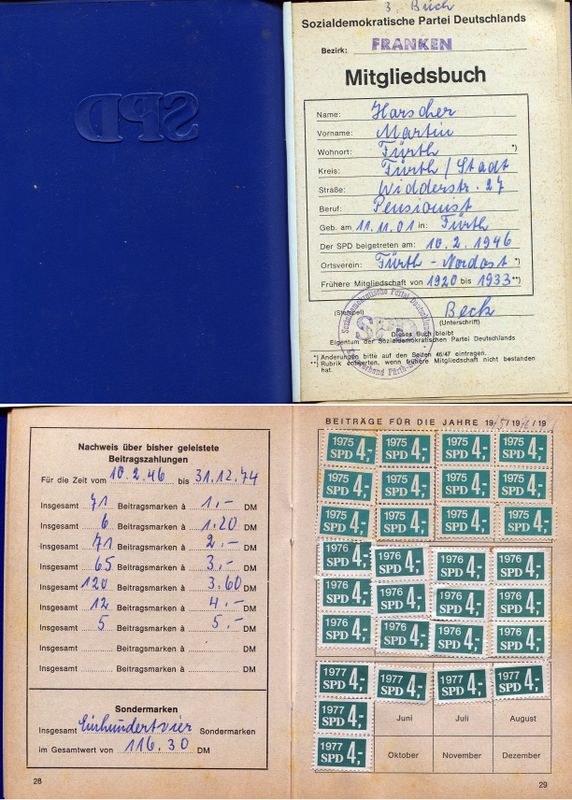 SPD
3. Buch
Sozialdemokratische Partei Deutschlands
Bezirk: FRANKEN
Mitgliedsbuch
Name: Harscher
Vorname: Martin
Wohnort: Fürth *)
Kreis: Fürth / Stadt
Straße: Widderstr. 27
Beruf: Pensionist
Geb. am 11.11.01 in: Fürth
Der SPD beigetreten am: 10.2.1946
Ortsverein: Fürth - Nordost *)
Frühere Mitgliedschaft von 1920 bis 1933 **)
Beck
(Stempel) (Unterschrift)
Sozialdemokratische Partei Deutschlands
SPD
Dieses Buch bleibt
Eigentum der Sozialdemokratischen Partei Deutschlands
*) Änderungen bitte auf den Seiten 46/47 eintragen.
**) Rubrik entwerten, wenn frühere Mitgliedschaft nicht bestanden
hat.
Nachweis über bisher geleistete
Beitragszahlungen
Für die Zeit vom 10.2.46 bis 31.12.74
Insgesamt 71 Beitragsmarken à 1,- DM
Insgesamt 6 Beitragsmarken à 1.20 DM
Insgesamt 71 Beitragsmarken à 2,- DM
Insgesamt 65 Beitragsmarken à 3,- DM
Insgesamt 120 Beitragsmarken à 3.60 DM
Insgesamt 12 Beitragsmarken à 4,- DM
Insgesamt 5 Beitragsmarken à 5,- DM
Insgesamt Beitragsmarken à DM
Insgesamt Beitragsmarken à DM
Sondermarken
Insgesamt Einhundertvier Sondermarken
im Gesamtwert von 116.30 DM
28
BEITRÄGE FÜR DIE JAHRE 1975/1976/19
1975 SPD 4,- 1975 SPD 4,- 1975 SPD 4,- 1975 SPD 4,-
1975 SPD 4,- 1975 SPD 4,- 1975 SPD 4,- 1975 SPD 4,-
1975 SPD 4,- 1975 SPD 4,- 1975 SPD 4,- 1975 SPD 4,-
1976 SPD 4,- 1976 SPD 4,- 1976 SPD 4,- 1976 SPD 4,-
1976 SPD 4,- 1976 SPD 4,- 1976 SPD 4,- 1976 SPD 4,-
1976 SPD 4,- 1976 SPD 4,- 1976 SPD 4,- 1976 SPD 4,-
1977 SPD 4,- 1977 SPD 4,- 1977 SPD 4,- 1977 SPD 4,-
1977 SPD 4,- Juni Juli August
1977 SPD 4,- Oktober November Dezember
29